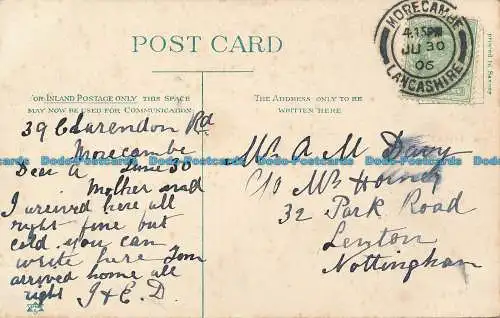 POST CARD
MORECAMBE
4.15PM
JU 30
06
LANCASHIRE
FOR INLAND POSTAGE ONLY THIS SPACE
MAY NOW BE USED FOR COMMUNICATION
THE ADDRESS ONLY TO BE
WRITTEN HERE
39 Clarendon Rd
Morecambe
Dear A June 30
Mother and
I arrived here all
right fine but
cold you can
write here Tom
arrived home all
right
J & E. D.
Mr. A M Davy
C/o Mrs
32 Park Road
Lenton
Nottingham
Postcards-Dodo